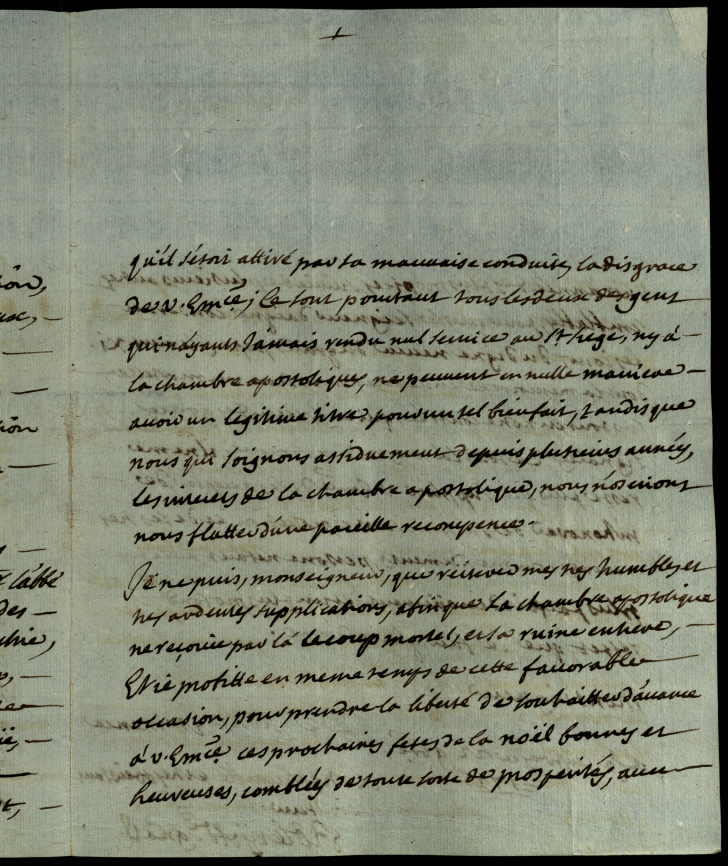 +
qu'il s'etoit attiré par sa mauvaise conduite, la disgrace
de v. Em.ce; Ce sont pourtant tous les deux de gent
qui n'ayants Jamais rendu nul service au S.t siege, ny à
la chambre apostolique, ne peuvent en nulle maniere
avoir un legitime titre pour un tel bienfait, tandis que
nous qui soignons assiduement depuis plusieurs années,
les interets de la chambre apostolique, nous n'oserions
nous flatter d'une pareille recompence.
Je ne puis, monseigneur, que réiterer mes tres humbles, et
tres ardentes supplications, afin que la chambre apostolique
ne reçoive par là le coup mortel, et sa ruine entiere,
Et je profitte en meme temps de cette favorable
occasion, pour prendre la liberté de souhaitter d'avance
à v. Em.ce ces prochaines fetes de la noël bonnes et
heureuses, comblées de toute sorte de prosperités, avec
l'abbé